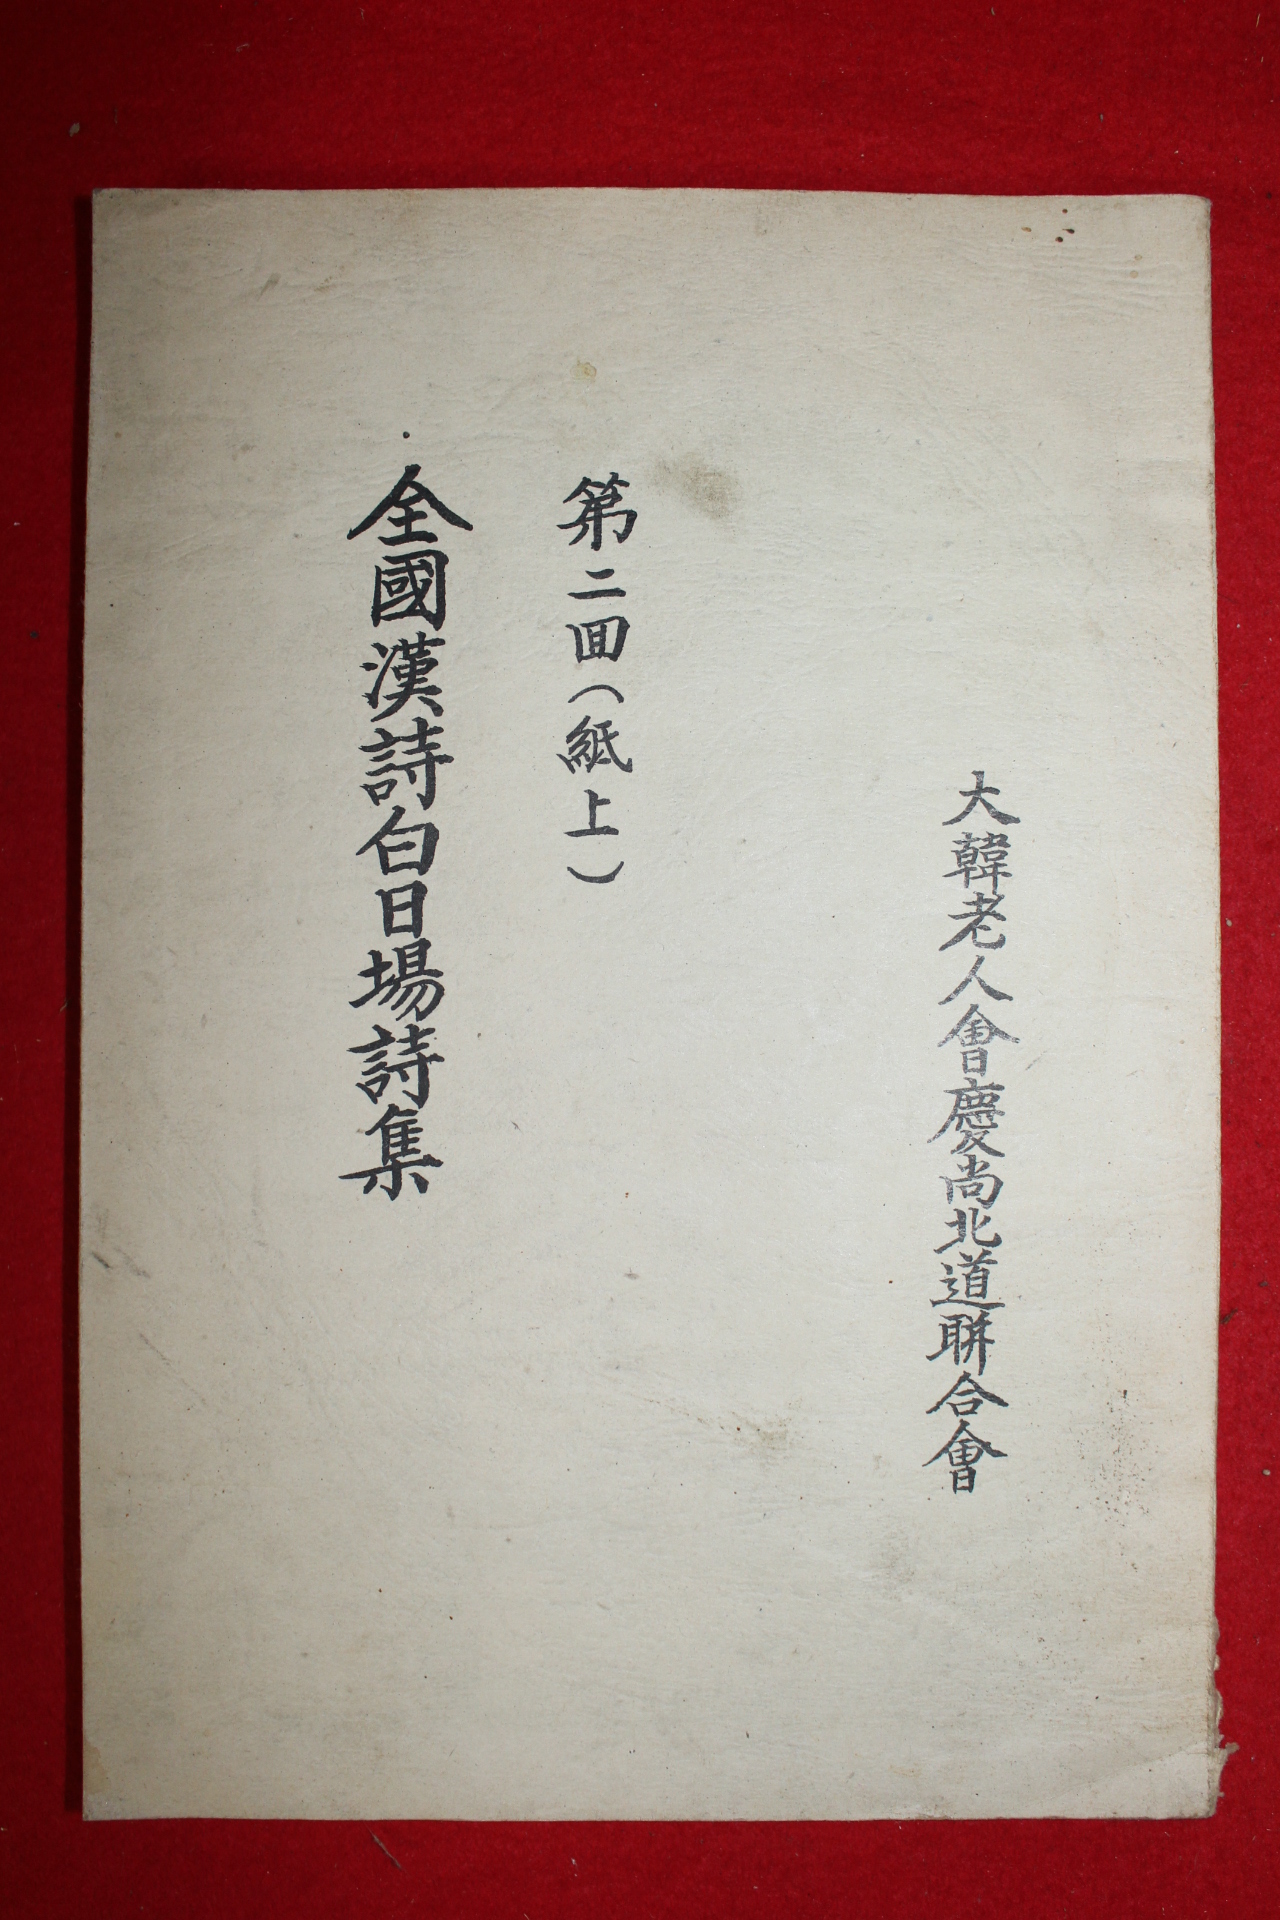 大韓老人會慶尚北道聯合會
第二囬(紙上)
全國漢詩白日場詩集